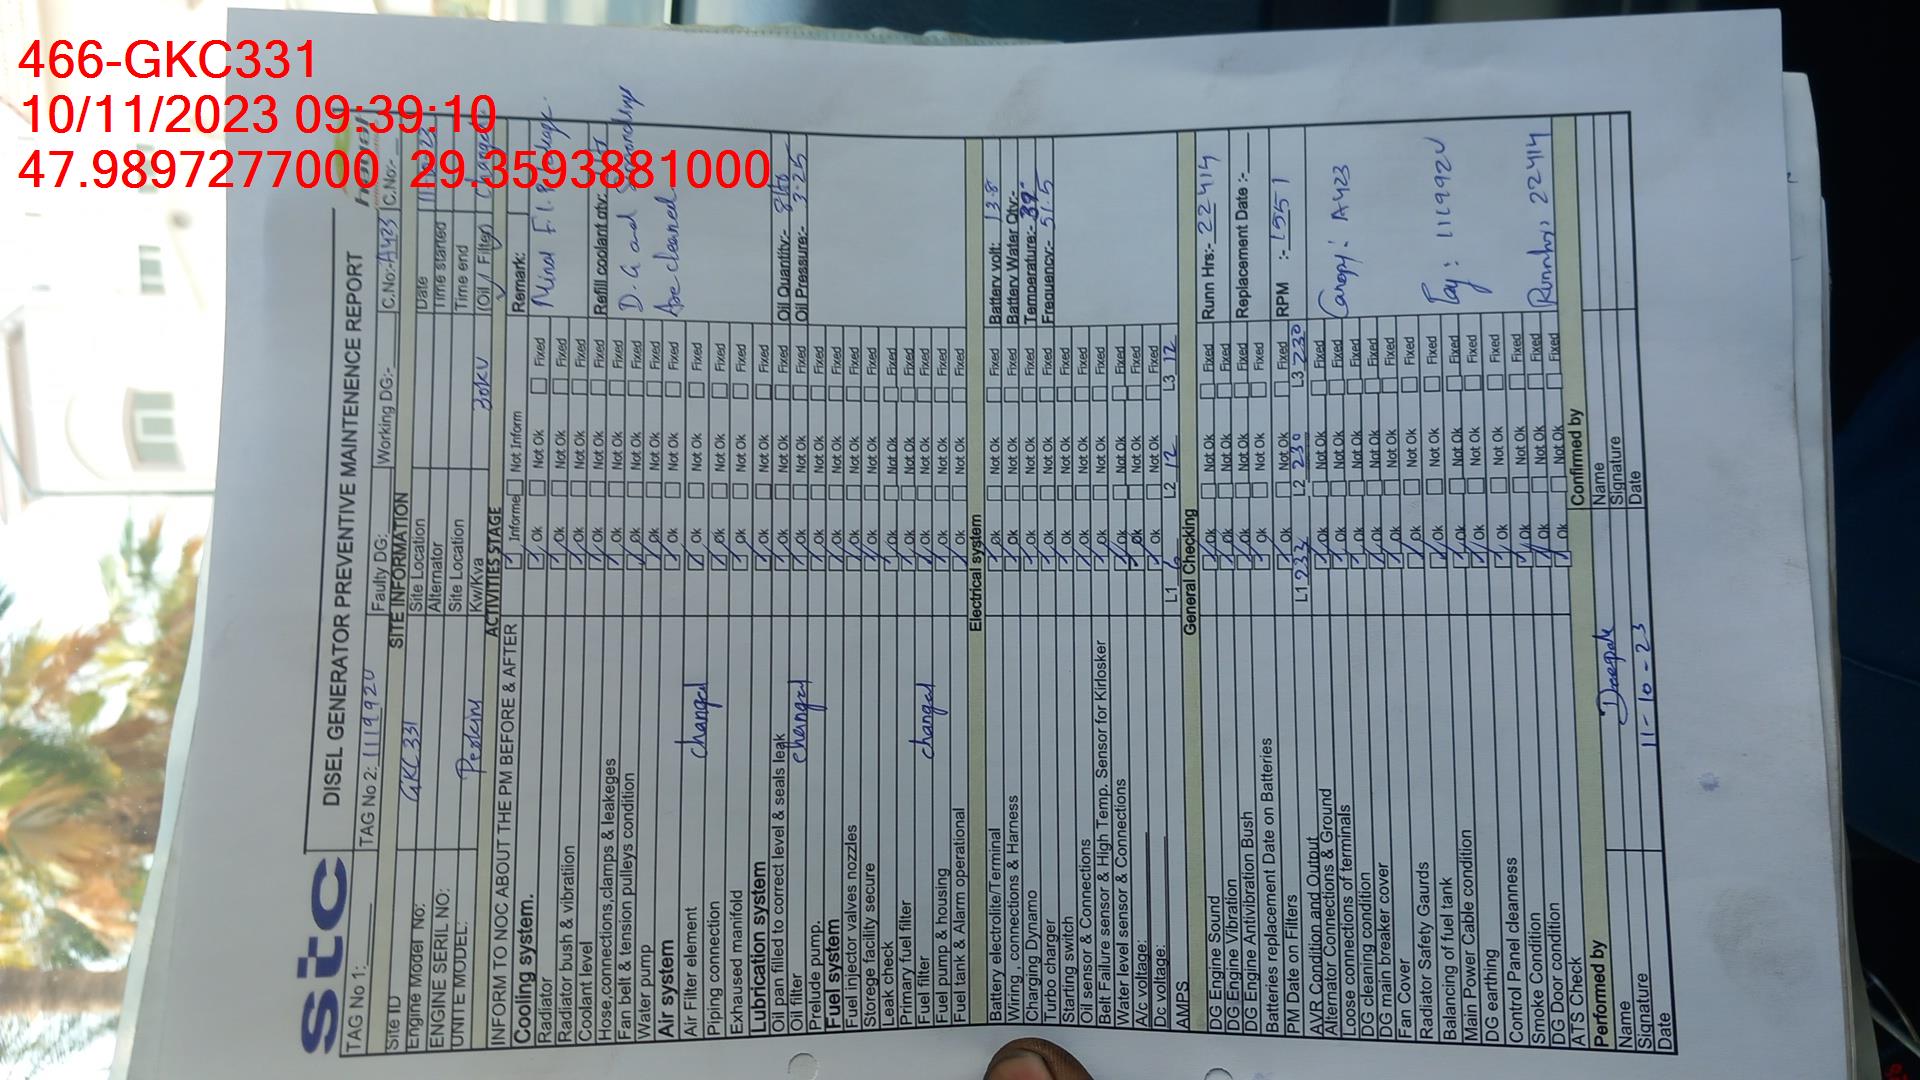 466-GKC331
10/11/2023 09:39:10
47.9897277000 29.3593881000
stc
DISEL GENERATOR PREVENTIVE MAINTENENCE REPORT
TAG No 1: TAG No 2: 111992U Faulty DG: Working DG:- C.No:- A423 C.No:-
SITE INFORMATION
Site ID GKC 331 Site Location Date
Engine Model No: Alternator Time started
ENGINE SERIL NO: Site Location Time end
UNITE MODEL: Perkins Kw/Kva 30KV (Oil / Filter) Changed
ACTIVITIES STAGE
INFORM TO NOC ABOUT THE PM BEFORE & AFTER Informe Not Inform Remark:
Cooling system.
Radiator Ok Not Ok Fixed
Radiator bush & vibratiion Ok Not Ok Fixed
Coolant level Ok Not Ok Fixed Refill coolant qty:
Hose,connections,clamps & leakeges Ok Not Ok Fixed D.G and
Fan belt & tension pulleys condition Ok Not Ok Fixed
Water pump Ok Not Ok Fixed Are cleaned
Air system Ok Not Ok Fixed
Air Filter element changed Ok Not Ok Fixed
Piping connection Ok Not Ok Fixed
Exhaused manifold Ok Not Ok Fixed
Lubrication system
Oil pan filled to correct level & seals leak Ok Not Ok Fixed Oil Quantity:-
Oil filter changed Ok Not Ok Fixed Oil Pressure:- 3.25
Prelude pump. Ok Not Ok Fixed
Fuel system Ok Not Ok Fixed
Fuel injector valves nozzles Ok Not Ok Fixed
Storege facility secure Ok Not Ok Fixed
Leak check Ok Not Ok Fixed
Primary fuel filter Ok Not Ok Fixed
Fuel filter changed Ok Not Ok Fixed
Fuel pump & housing Ok Not Ok Fixed
Fuel tank & Alarm operational Ok Not Ok Fixed
Electrical system
Battery electrolite/Terminal Ok Not Ok Fixed Battery volt: 13.8
Wiring , connections & Harness Ok Not Ok Fixed Battery Water Qty:-
Charging Dynamo Ok Not Ok Fixed Temperature:-
Turbo charger Ok Not Ok Fixed Frequency:- 51.5
Starting switch Ok Not Ok Fixed
Oil sensor & Connections Ok Not Ok Fixed
Belt Failure sensor & High Temp. Sensor for Kirlosker Ok Not Ok Fixed
Water level sensor & Connections Ok Not Ok Fixed
A/c voltage: Ok Not Ok Fixed
Dc voltage: Ok Not Ok Fixed
AMPS L1 6 L2 12 L3 12
General Checking
DG Engine Sound Ok Not Ok Fixed Runn Hrs:- 22414
DG Engine Vibration Ok Not Ok Fixed
DG Engine Antivibration Bush Ok Not Ok Fixed Replacement Date :-
Batteries replacement Date on Batteries Ok Not Ok Fixed
PM Date on Filters Ok Not Ok Fixed RPM :- 1551
AVR Condition and Output L1 233 L2 230 L3 230
Alternator Connections & Ground Ok Not Ok Fixed
Loose connections of terminals Ok Not Ok Fixed Canopy: A423
DG cleaning condition Ok Not Ok Fixed
DG main breaker cover Ok Not Ok Fixed
Fan Cover Ok Not Ok Fixed
Radiator Safety Gaurds Ok Not Ok Fixed
Balancing of fuel tank Ok Not Ok Fixed Tag: 111992U
Main Power Cable condition Ok Not Ok Fixed
DG earthing Ok Not Ok Fixed
Control Panel cleanness Ok Not Ok Fixed
Smoke Condition Ok Not Ok Fixed
DG Door condition Ok Not Ok Fixed Runnhrs: 22414
ATS Check Ok Not Ok Fixed
Performed by Confirmed by
Name Deepak Name
Signature Signature
Date 11-10-23 Date